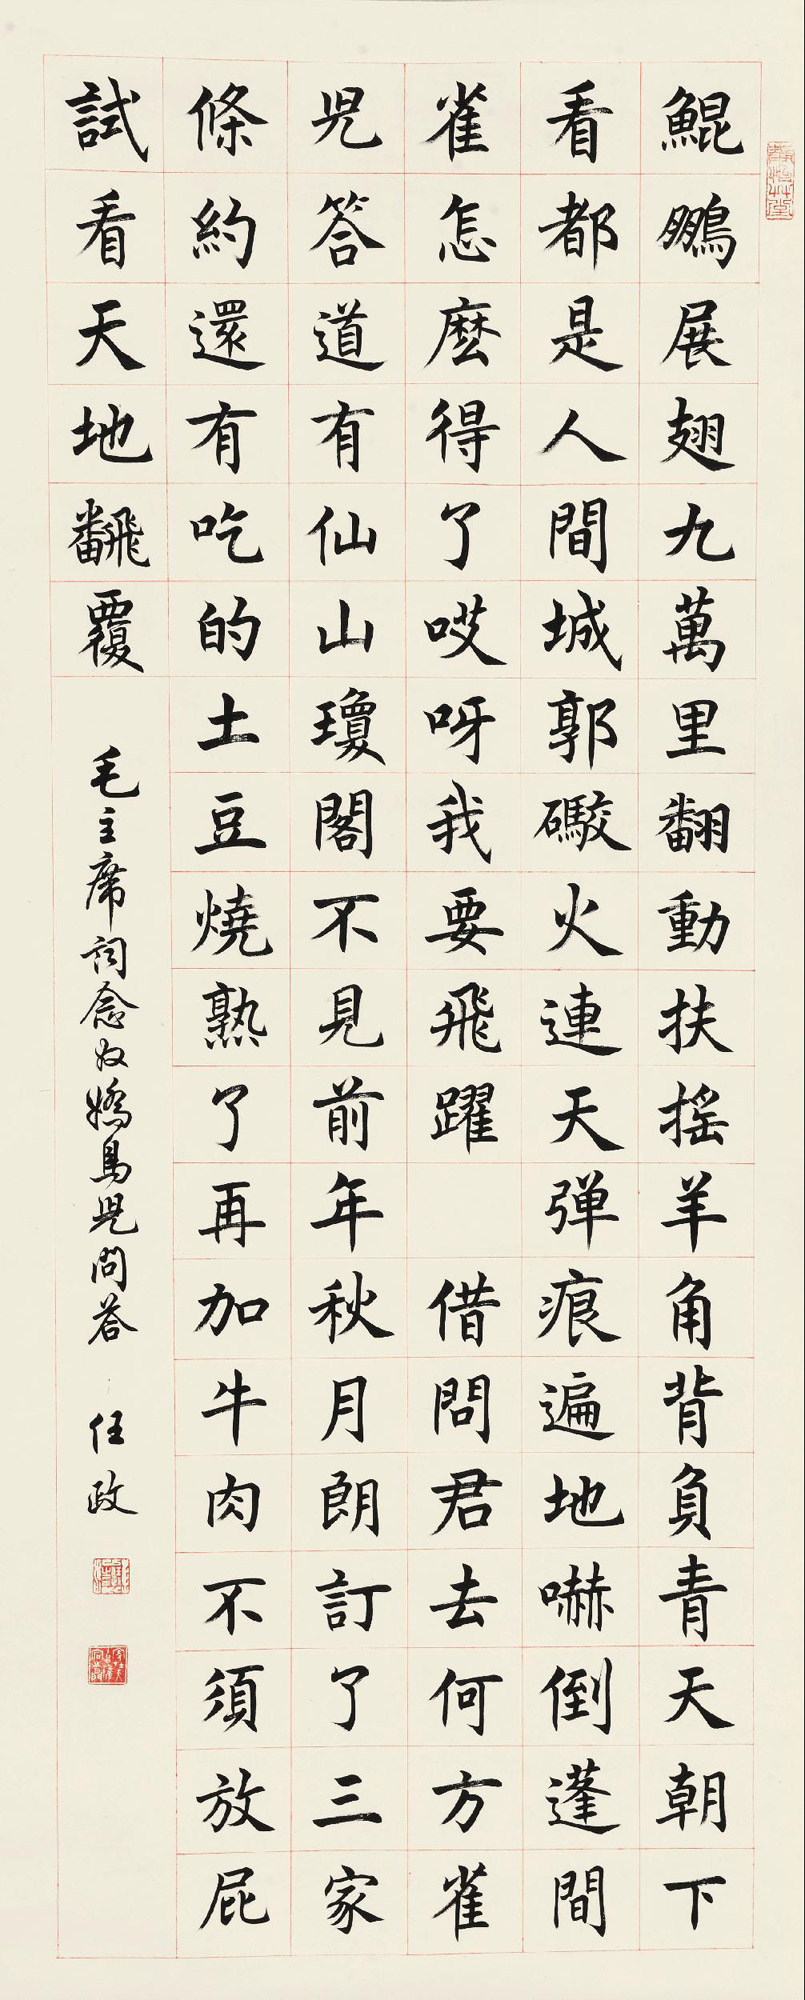 鯤鵬展翅九萬里翻動扶搖羊角背負青天朝下
看都是人間城郭礮火連天弹痕遍地嚇倒蓬間
雀怎麽得了哎呀我要飛躍 借問君去何方雀
児答道有仙山瓊閣不見前年秋月朗訂了三家
條約還有吃的土豆燒熟了再加牛肉不須放屁
試看天地飜覆
毛主席詞念奴嬌鳥児問答 任政